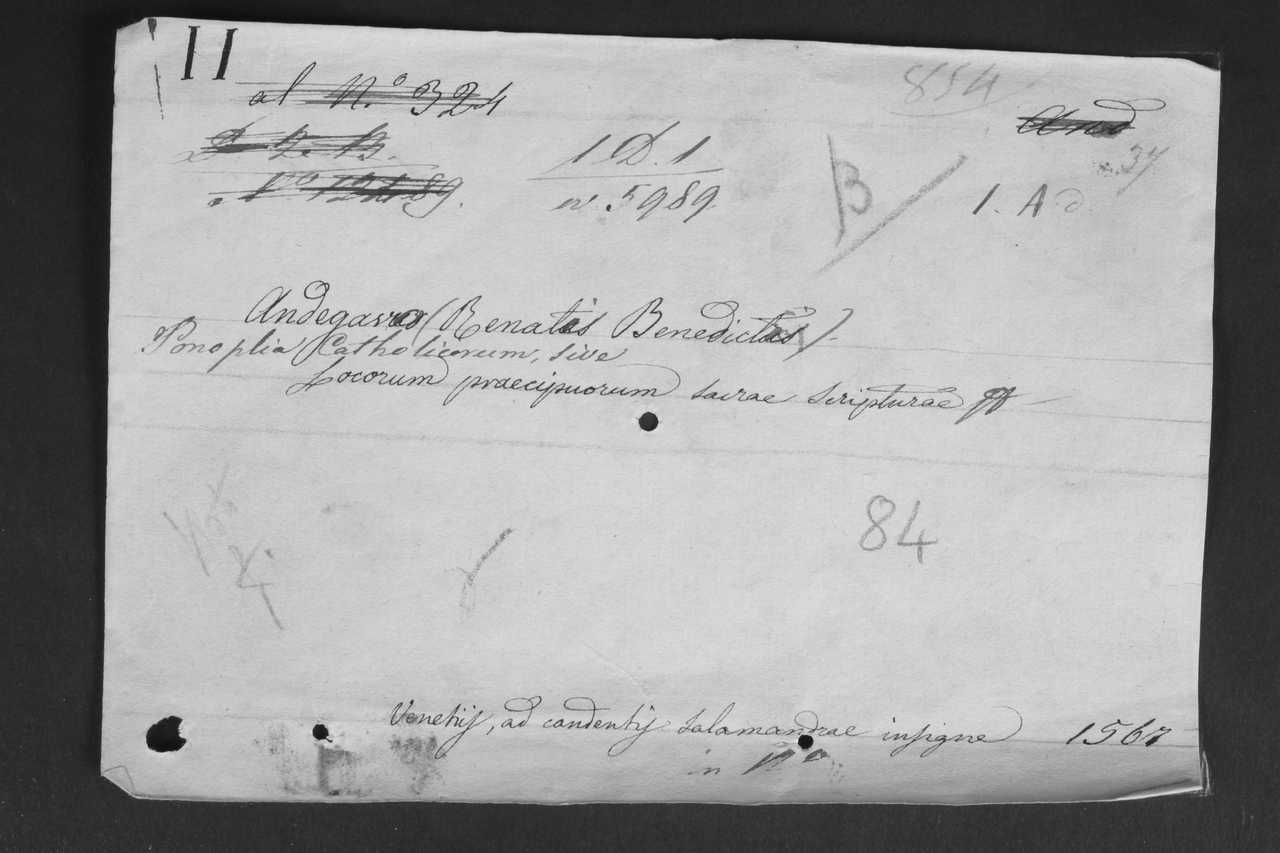 II
al N.o 324
854
And
37
1. D. 1
B
1. A
nr. 5989
Andegavo (Renatus Benedictus).
Panoplia Catholicorum, sive
Locorum praecipuorum sacrae scripturae
84
Venetijs, ad candentis salamandrae insigne 1567
in 12o